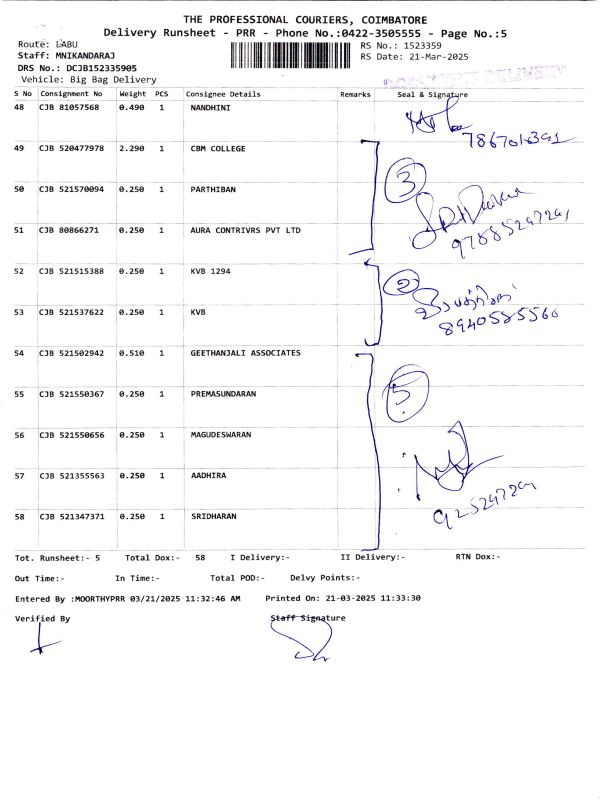 THE PROFESSIONAL COURIERS, COIMBATORE
Delivery Runsheet - PRR - Phone No.:0422-3505555 - Page No.:5
Route: LABU
RS No.: 1523359
Staff: MNIKANDARAJ
RS Date: 21-Mar-2025
DRS No.: DCJB152335905
Vehicle: Big Bag Delivery
S No Consignment No Weight PCS Consignee Details Remarks Seal & Signature
48 CJB 81057568 0.490 1 NANDHINI
49 CJB 520477978 2.290 1 CBM COLLEGE
3
50 CJB 521570094 0.250 1 PARTHIBAN
51 CJB 80866271 0.250 1 AURA CONTRIVRS PVT LTD
52 CJB 521515388 0.250 1 KVB 1294
2
53 CJB 521537622 0.250 1 KVB
8940585560
54 CJB 521502942 0.510 1 GEETHANJALI ASSOCIATES
5
55 CJB 521550367 0.250 1 PREMASUNDARAN
56 CJB 521550656 0.250 1 MAGUDESWARAN
57 CJB 521355563 0.250 1 AADHIRA
58 CJB 521347371 0.250 1 SRIDHARAN
Tot. Runsheet:- 5 Total Dox:- 58 I Delivery:- II Delivery:- RTN Dox:-
Out Time:- In Time:- Total POD:- Delvy Points:-
Entered By :MOORTHYPRR 03/21/2025 11:32:46 AM Printed On: 21-03-2025 11:33:30
Verified By Staff Signature